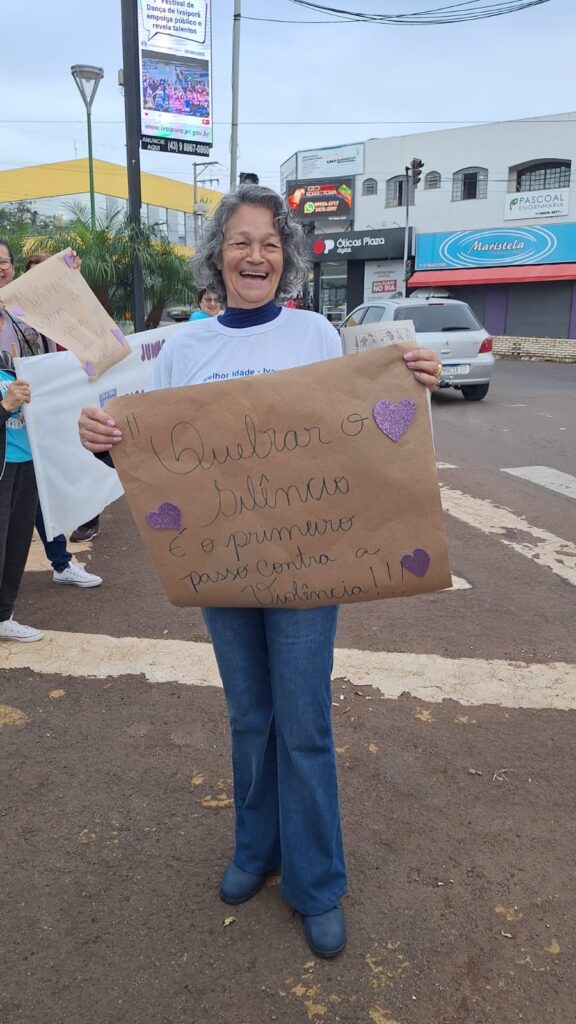 Festival de
Dança de Ivaiporã
empolga público e
revela talentos
www.ivaipora.pr.gov.br
ANUNCIE AQUI (43) 9 8867-0860
Óticas Plaza
digital
PASCOAL
ENGENHARIA
Maristela
JUN
elhor Idade - Iva
"Quebrar o
Silêncio
É o primeiro
passo contra a
Violência!!!